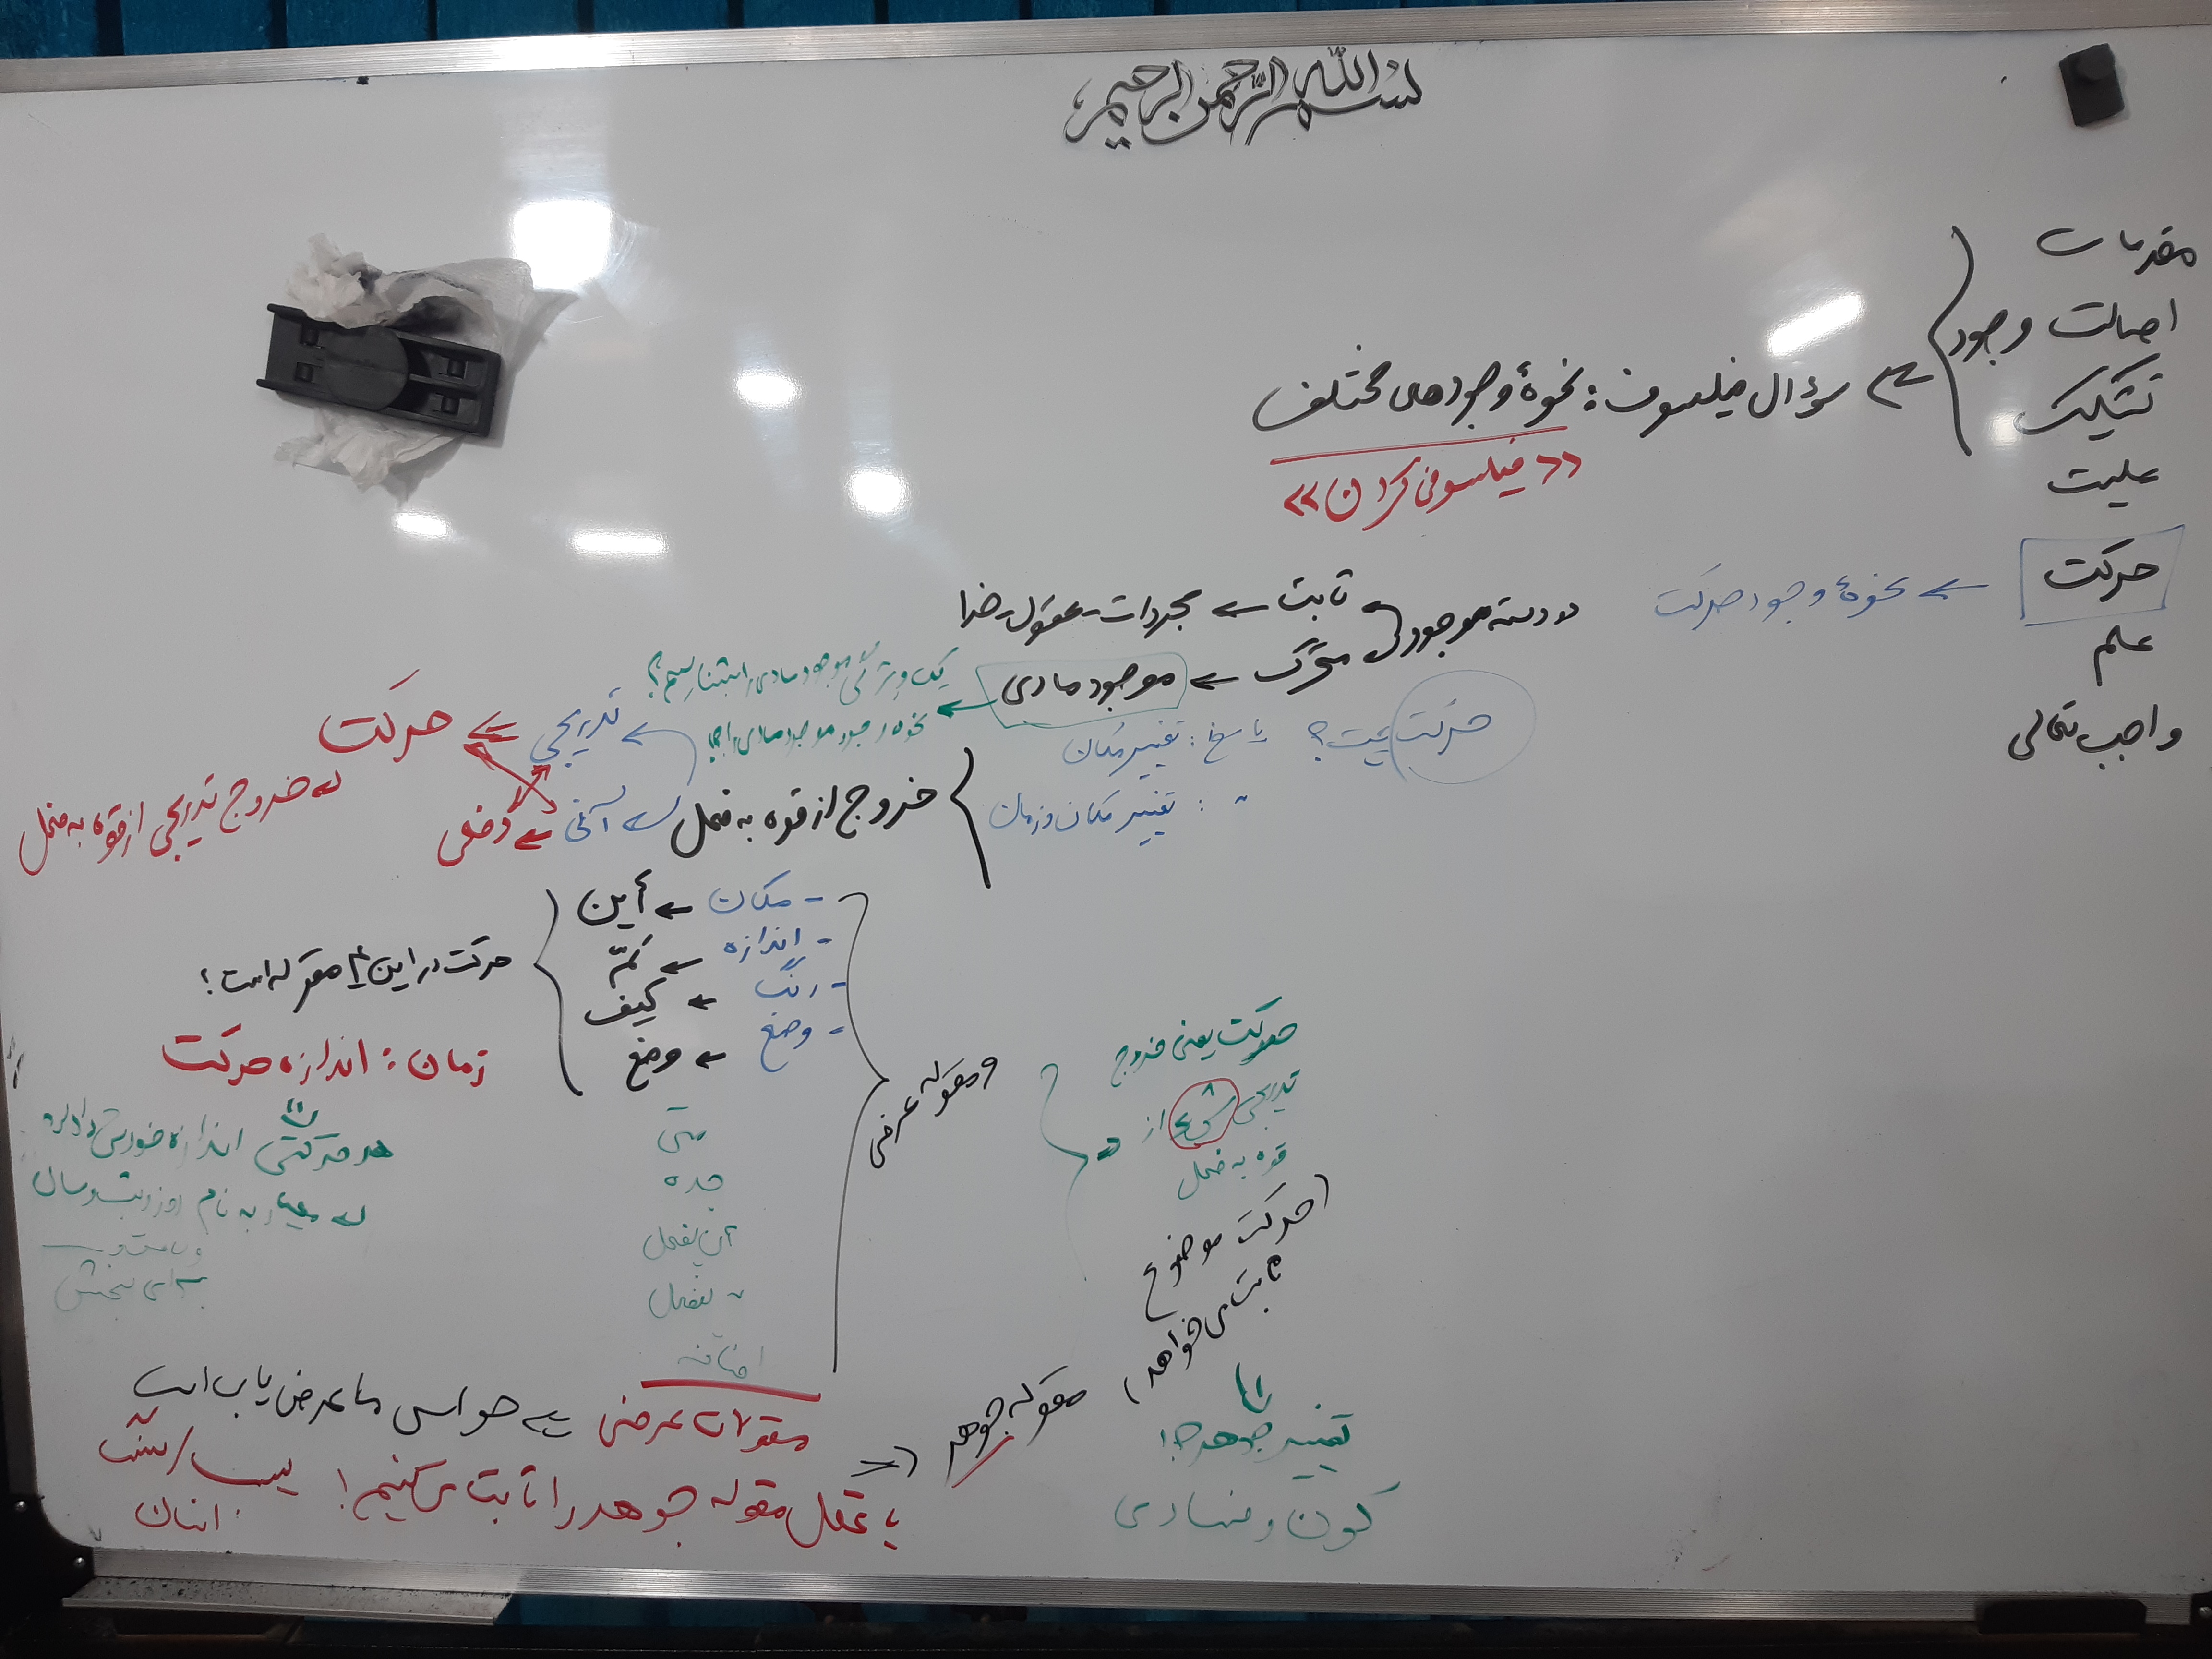 بسم الله الرحمن الرحیم
مقدمات
اصالت وجود
تشکیک
علیت
حرکت
علم
واجب تعالی
سؤال فیلسوف: نحوهٔ وجودهای مختلف
«فیلسوفی کردن»
نحوهٔ وجود حرکت
دو دسته موجود
ثابت ← مجردات - عقول - خدا
متحرک ← موجود مادی
یک ویژگی موجود مادی را بشناسیم؟
نحوه وجود موجود مادی را
حرکت چیست؟ پاسخ: تغییر مکان
" : تغییر مکان و زمان
خروج از قوه به فعل
تدریجی ⇐ حرکت
آنی ⇐ دفعی
خروج تدریجی از قوه به فعل
- مکان ← أین
- اندازه ← کمّ
- رنگ ← کیف
- وضع ← وضع
متی
جده
أن یفعل
" ینفعل
اضافه
۹ مقوله عرضی
حرکت در این ۴ مقوله است؛
زمان: اندازه حرکت
هر حرکتی اندازه خودش را دارد
معیار به نام روز و شب و سال
برای سنجش
حرکت یعنی خروج
تدریجی شیء از
قوه به فعل
(حرکت موضوع
ثابت می خواهد)
تغییر جوهر چه؟
کون و فسادی
مقوله جوهر
مقولات عرضی ⇐ حواس ما عرض یاب است
با عقل مقوله جوهر را ثابت می کنیم! سیب / سنگ
انسان